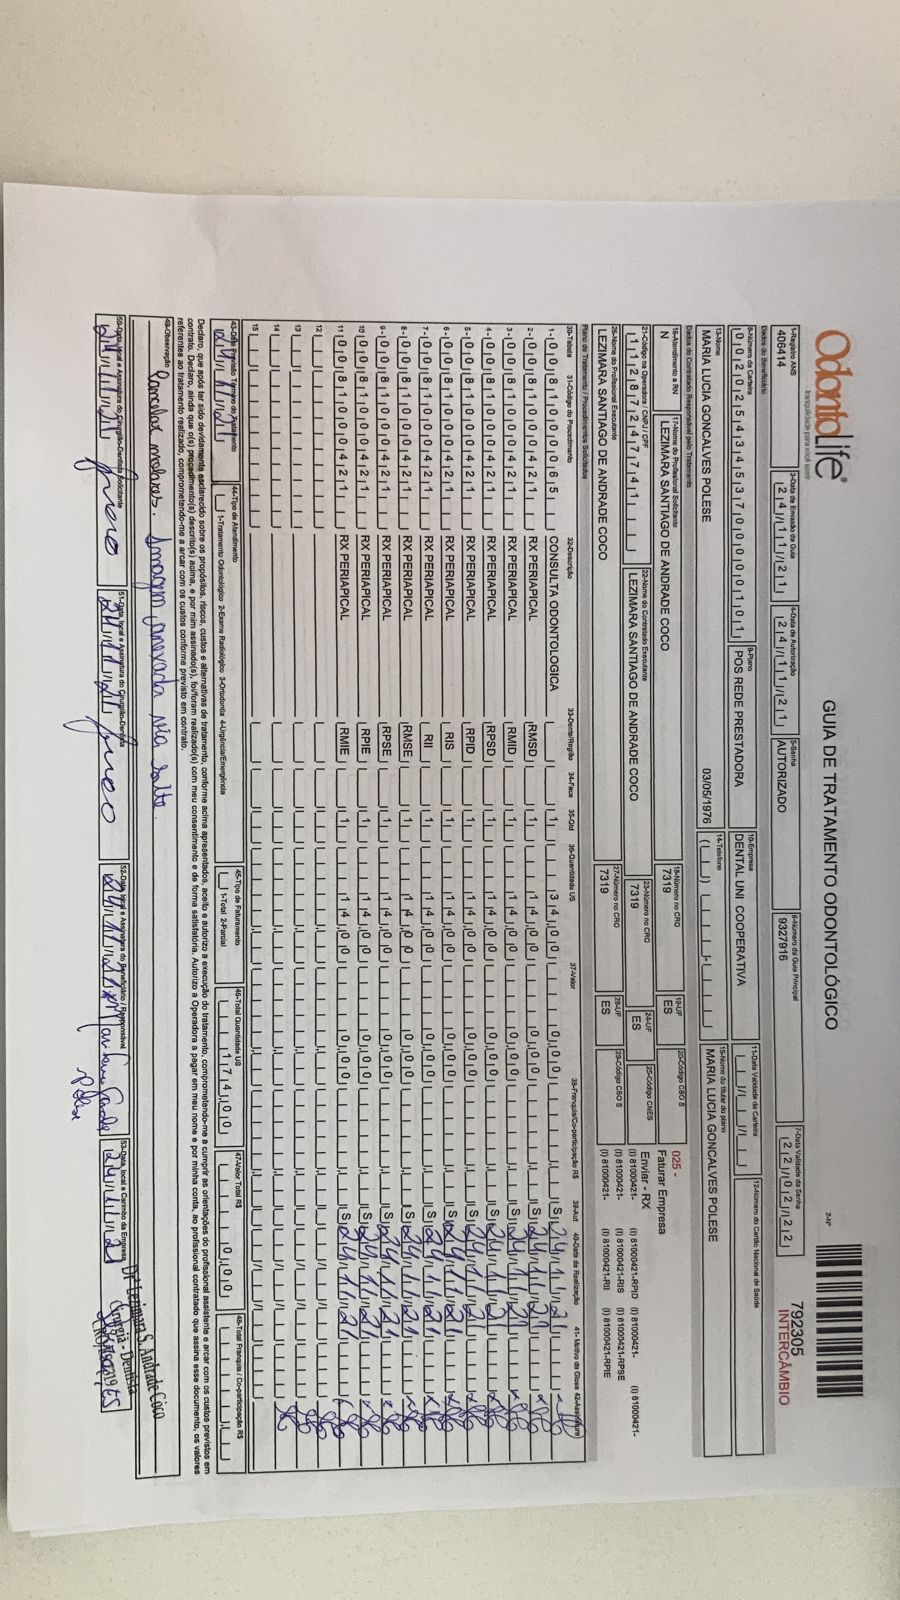 OdontoLife®
tranquilidade para você sorrir
GUIA DE TRATAMENTO ODONTOLÓGICO
2-Nº
792305
INTERCÂMBIO
1-Registro ANS
406414
3-Data de Emissão da Guia
24/11/21
4-Data de Autorização
24/11/21
5-Senha
AUTORIZADO
6-Número da Guia Principal
9327916
7-Data Validade da Senha
22/02/22
Dados do Beneficiário
8-Número da Carteira
00202543453700000101
9-Plano
POS REDE PRESTADORA
10-Empresa
DENTAL UNI COOPERATIVA
11-Data Validade da Carteira
12-Número do Cartão Nacional de Saúde
13-Nome
MARIA LUCIA GONCALVES POLESE
03/05/1976
14-Telefone
15-Nome do titular do plano
MARIA LUCIA GONCALVES POLESE
Dados do Contratado Responsável pelo Tratamento
16-Atendimento a RN
N
17-Nome do Profissional Solicitante
LEZIMARA SANTIAGO DE ANDRADE COCO
18-Número no CRO
7319
19-UF
ES
20-Código CBO S
025 -
Faturar Empresa
21-Código na Operadora / CNPJ / CPF
11287247741
22-Nome do Contratado Executante
LEZIMARA SANTIAGO DE ANDRADE COCO
23-Número no CRO
7319
24-UF
ES
25-Código CNES
Enviar - RX
(I) 81000421-RPID (I) 81000421- (I) 81000421-
(I) 81000421- (I) 81000421-RIS (I) 81000421-RPSE
(I) 81000421- (I) 81000421-RII (I) 81000421-RPIE
26-Nome do Profissional Executante
LEZIMARA SANTIAGO DE ANDRADE COCO
27-Número no CRO
7319
28-UF
ES
29-Código CBO S
Plano de Tratamento / Procedimentos Solicitados
30-Tabela 31-Código do Procedimento 32-Descrição 33-Dente/Região 34-Face 35-Qtd 36-Quantidade US 37-Valor 38-Franquia/Co-participação R$ 39-Aut 40-Data de Realização 41-Motivo da Glosa 42-Assinatura
1- 00 81000065 CONSULTA ODONTOLOGICA 1 34,00 0,00 S 24/11/21
2- 00 81000421 RX PERIAPICAL RMSD 1 14,00 0,00 S 24/11/21
3- 00 81000421 RX PERIAPICAL RMID 1 14,00 0,00 S 24/11/21
4- 00 81000421 RX PERIAPICAL RPSD 1 14,00 0,00 S 24/11/21
5- 00 81000421 RX PERIAPICAL RPID 1 14,00 0,00 S 24/11/21
6- 00 81000421 RX PERIAPICAL RIS 1 14,00 0,00 S 24/11/21
7- 00 81000421 RX PERIAPICAL RII 1 14,00 0,00 S 24/11/21
8- 00 81000421 RX PERIAPICAL RMSE 1 14,00 0,00 S 24/11/21
9- 00 81000421 RX PERIAPICAL RPSE 1 14,00 0,00 S 24/11/21
10 00 81000421 RX PERIAPICAL RPIE 1 14,00 0,00 S 24/11/21
11 00 81000421 RX PERIAPICAL RMIE 1 14,00 0,00 S 24/11/21
12
13
14
15
43-Data Prevista Término do Tratamento
24/11/21
44-Tipo de Atendimento
1-Tratamento Odontológico 2-Exame Radiológico 3-Ortodontia 4-Urgência/Emergência
45-Tipo de Faturamento
1-Total 2-Parcial
46-Total Quantidade US
174,00
47-Valor Total R$
0,00
48-Total Franquia / Co-participação R$
Declaro, que após ter sido devidamente esclarecido sobre os propósitos, riscos, custos e alternativas de tratamento, conforme acima apresentados, aceito e autorizo a execução do tratamento, comprometendo-me a cumprir as orientações do profissional assistente e arcar com os custos previstos em
contrato. Declaro, ainda que o(s) procedimento(s) descrito(s) acima, e por mim assinado(s), foi/foram realizado(s) com meu consentimento e de forma satisfatória. Autorizo a Operadora a pagar em meu nome e por minha conta, ao profissional contratado que assina esse documento, os valores
referentes ao tratamento realizado, comprometendo-me a arcar com os custos conforme previsto em contrato.
49-Observação
Cancelar molares. Imagem anexada via
50-Data, local e Assinatura do Cirurgião-Dentista Solicitante
24/11/21
51-Data, local e Assinatura do Cirurgião-Dentista
24/11/21
52-Data, local e Assinatura do Beneficiário / Responsável
24/11/21
Polese
53-Data, local e Carimbo da Empresa
24/11/21
Drª Lezimara S. Andrade Coco
Cirurgiã - Dentista